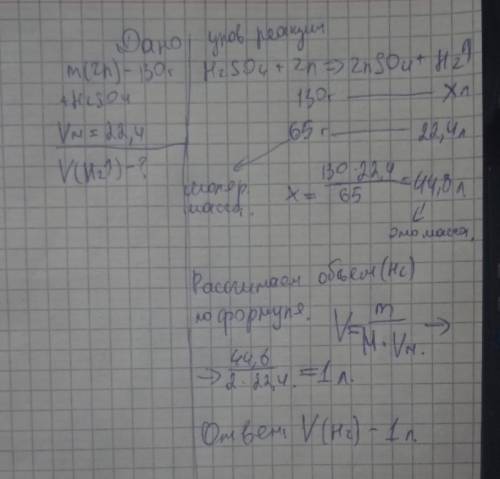 Дано
m(Zn) - 130г
+H2SO4
VM = 22,4
V(H2) - ?
урав реакции
H2SO4 + Zn => ZnSO4 + H2↑
130г — Xл
65г — 22,4л
моляр.
масса.
X = 130·22,4 / 65 = 44,8л
это масса.
Рассчитаем объем (H2)
по формуле. V = m / M·VM. →
→ 44,6 / 2·22,4. = 1л.
Ответ V(H2) - 1л